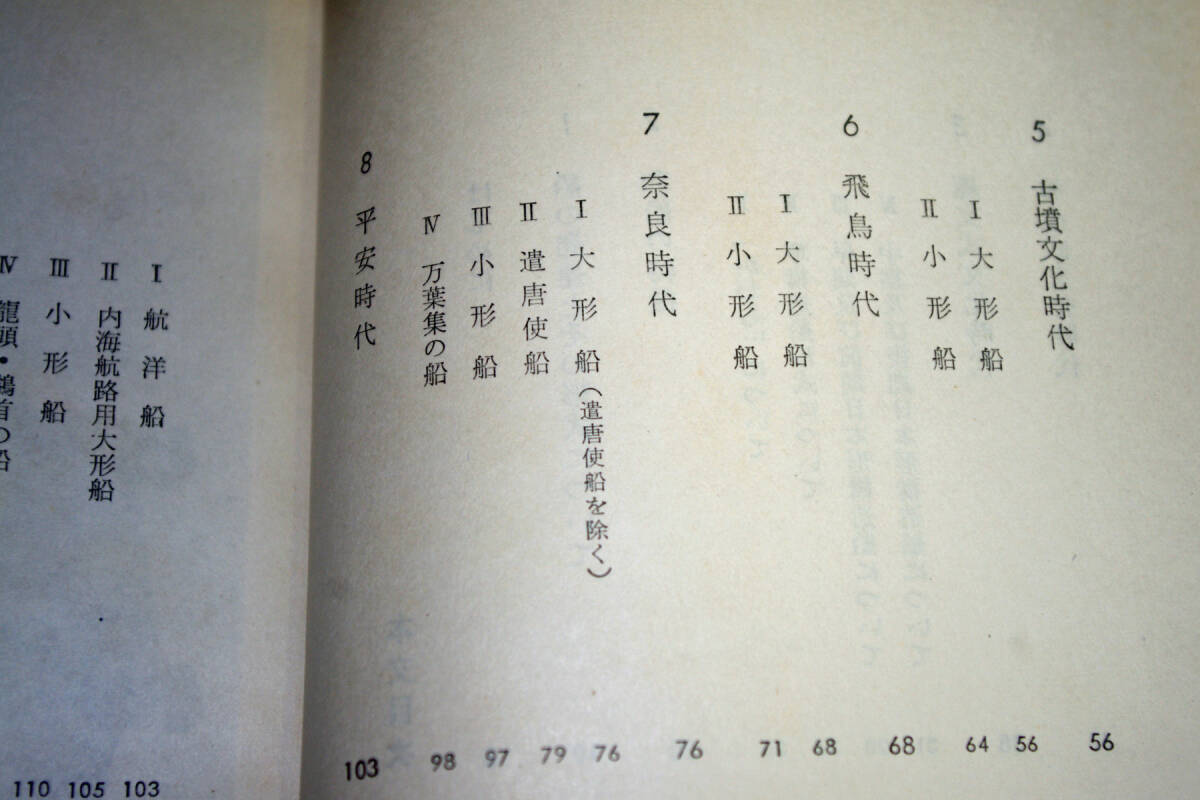 5 古墳文化時代 56
Ⅰ 大形船 56
Ⅱ 小形船 64
6 飛鳥時代 68
Ⅰ 大形船 68
Ⅱ 小形船 71
7 奈良時代 76
Ⅰ 大形船(遣唐使船を除く) 76
Ⅱ 遣唐使船 79
Ⅲ 小形船 97
Ⅳ 万葉集の船 98
8 平安時代 103
Ⅰ 航洋船 103
Ⅱ 内海航路用大形船 105
Ⅲ 小形船 110
Ⅳ 龍頭・鷁首の船